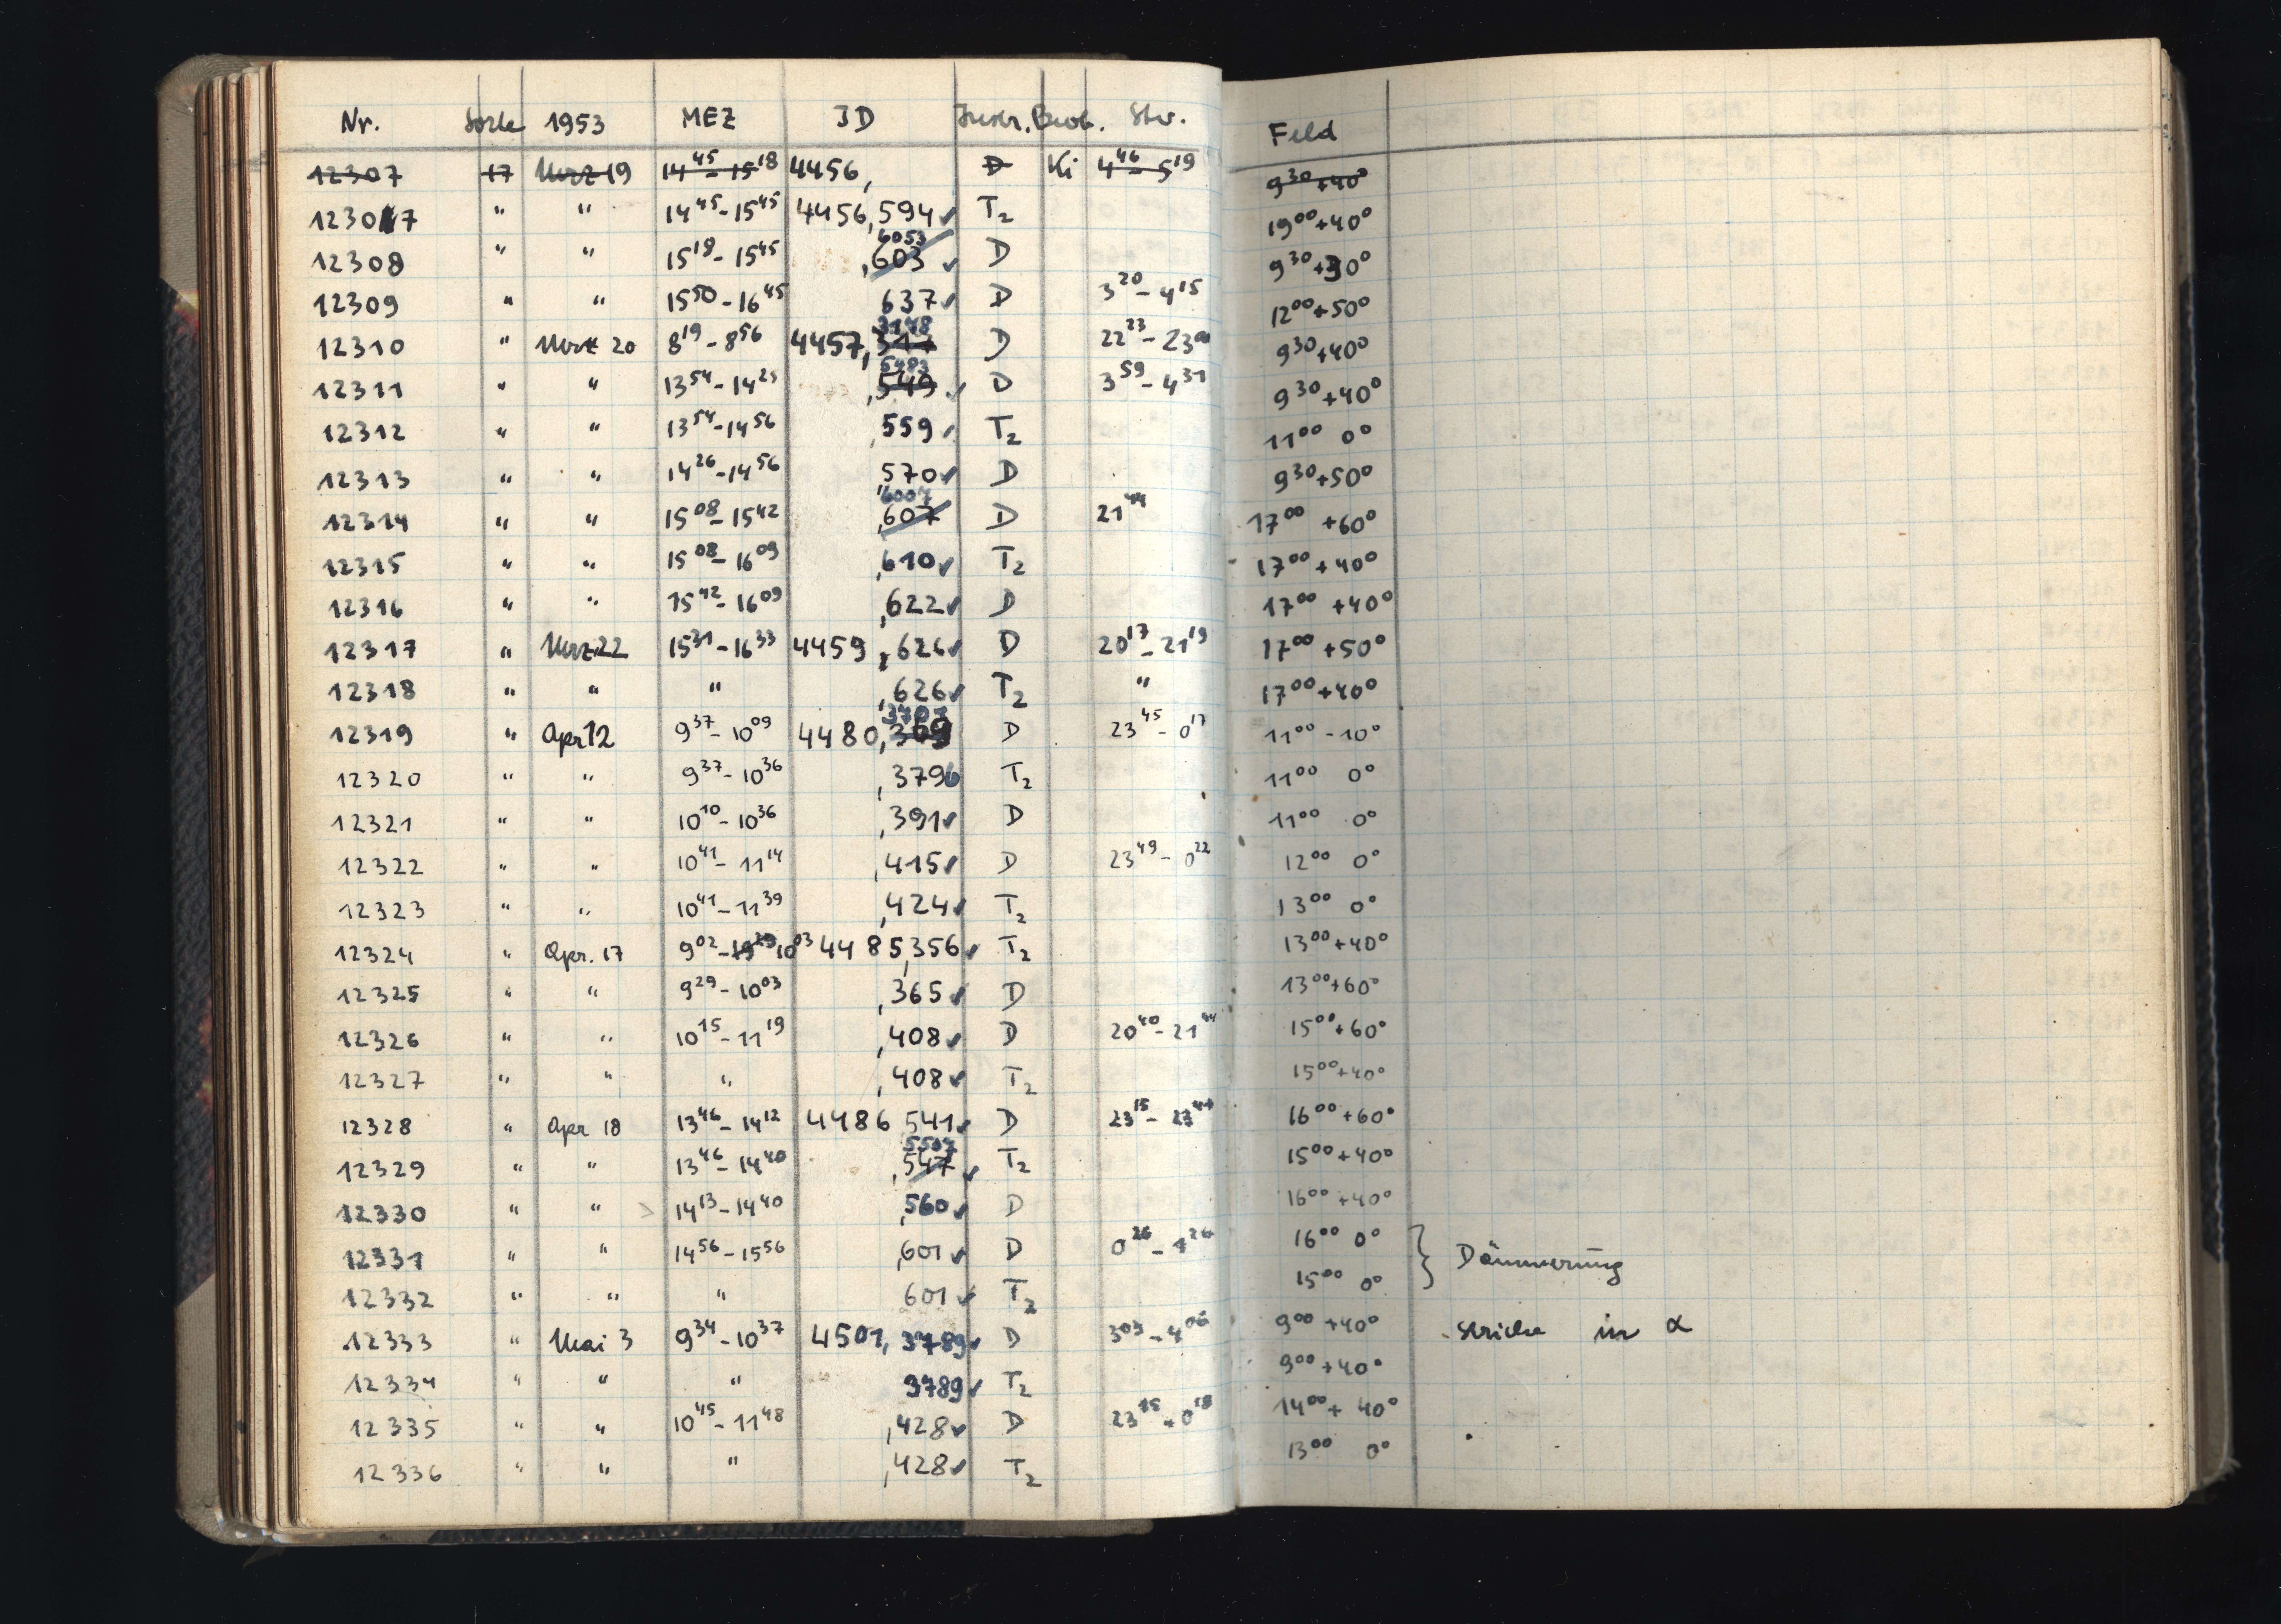 Nr. Sorte 1953 MEZ JD Instr. Beob. Stw. Feld
12307 17 März 19 14⁴⁵-15¹⁸ 4456, D Ki 4⁴⁶-5¹⁹ 9³⁰+40°
12307 " " 14⁴⁵-15⁴⁵ 4456,594✓ T₂ 19⁰⁰+40°
12308 " " 15¹⁹-15⁴⁵ ,603 6053 ✓ D 9³⁰+30°
12309 " " 15⁵⁰-16⁴⁵ 637✓ D 3²⁰-4¹⁵ 12⁰⁰+50°
12310 " März 20 8¹⁹-8⁵⁶ 4457, 3178 D 22²³-23⁰⁰ 9³⁰+40°
12311 " " 13⁵⁴-14²⁵ ,549 5483 ✓ D 3⁵⁹-4³¹ 9³⁰+40°
12312 " " 13⁵⁴-14⁵⁶ ,559✓ T₂ 11⁰⁰ 0°
12313 " " 14²⁶-14⁵⁶ ,570✓ D 9³⁰+50°
12314 " " 15⁰⁸-15⁴² ,607 6007 D 21⁴⁴ 17⁰⁰ +60°
12315 " " 15⁰⁸-16⁰⁹ ,610✓ T₂ 17⁰⁰+40°
12316 " " 15⁴²-16⁰⁹ ,622✓ D 17⁰⁰ +40°
12317 " März 22 15³¹-16³³ 4459,626✓ D 20¹⁷-21¹⁹ 17⁰⁰+50°
12318 " " " ,626✓ T₂ " 17⁰⁰+40°
12319 " Apr 12 9³⁷-10⁰⁹ 4480,369 3707 D 23⁴⁵-0¹⁷ 11⁰⁰-10°
12320 " " 9³⁷-10³⁶ ,3796 T₂ 11⁰⁰ 0°
12321 " " 10¹⁰-10³⁶ ,391✓ D 11⁰⁰ 0°
12322 " " 10⁴¹-11¹⁴ ,415✓ D 23⁴⁹-0²² 12⁰⁰ 0°
12323 " " 10⁴¹-11³⁹ ,424✓ T₂ 13⁰⁰ 0°
12324 " Apr. 17 9⁰²-10⁰³ 4485,356✓ T₂ 13⁰⁰+40°
12325 " " 9²⁹-10⁰³ ,365✓ D 13⁰⁰+60°
12326 " " 10¹⁵-11¹⁹ ,408✓ D 20⁴⁰-21⁴⁴ 15⁰⁰+60°
12327 " " " ,408✓ T₂ 15⁰⁰+40°
12328 " Apr 18 13⁴⁶-14¹² 4486 541✓ D 23¹⁵-23⁴¹ 16⁰⁰+60°
12329 " " 13⁴⁶-14⁴⁰ ,547 5507 ✓ T₂ 15⁰⁰+40°
12330 " " 14¹³-14⁴⁰ ,560✓ D 16⁰⁰+40°
12331 " " 14⁵⁶-15⁵⁶ ,601✓ D 0²⁶-1²⁶ 16⁰⁰ 0° } Dämmerung
12332 " " " 601✓ T₂ 15⁰⁰ 0°
12333 " Mai 3 9³⁴-10³⁷ 4501,3789✓ D 3⁰³-4⁰⁶ 9⁰⁰+40° Striche in α
12334 " " " 3789✓ T₂ 9⁰⁰+40°
12335 " " 10⁴⁵-11⁴⁸ ,428✓ D 23¹⁵-0¹⁸ 14⁰⁰+40°
12336 " " " ,428✓ T₂ 13⁰⁰ 0°